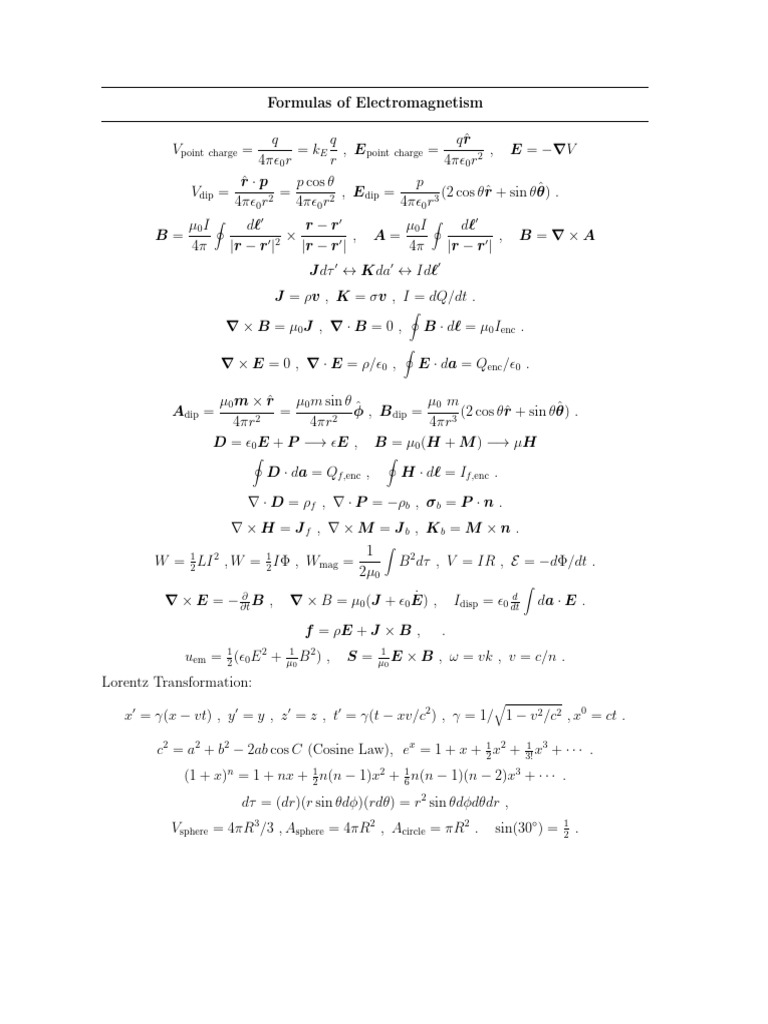 Formulas of Electromagnetism
V_point charge = q/(4πϵ₀r) = k_E q/r , E_point charge = qr̂/(4πϵ₀r²) , E = −∇V
V_dip = r̂ · p/(4πϵ₀r²) = p cos θ/(4πϵ₀r²) , E_dip = p/(4πϵ₀r³)(2 cos θr̂ + sin θθ̂) .
B = μ₀I/4π ∮ dℓ′/|r − r′|² × (r − r′)/|r − r′| , A = μ₀I/4π ∮ dℓ′/|r − r′| , B = ∇ × A
Jdτ′ ↔ Kda′ ↔ Idℓ′
J = ρv , K = σv , I = dQ/dt .
∇ × B = μ₀J , ∇ · B = 0 , ∮ B · dℓ = μ₀I_enc .
∇ × E = 0 , ∇ · E = ρ/ϵ₀ , ∮ E · da = Q_enc/ϵ₀ .
A_dip = μ₀m × r̂/(4πr²) = μ₀m sin θ/(4πr²) φ̂ , B_dip = μ₀ m/(4πr³)(2 cos θr̂ + sin θθ̂) .
D = ϵ₀E + P ⟶ ϵE , B = μ₀(H + M) ⟶ μH
∮ D · da = Q_f,enc , ∮ H · dℓ = I_f,enc .
∇ · D = ρ_f , ∇ · P = −ρ_b , σ_b = P · n .
∇ × H = J_f , ∇ × M = J_b , K_b = M × n .
W = ½LI² , W = ½IΦ , W_mag = 1/(2μ₀) ∫ B²dτ , V = IR , ℰ = −dΦ/dt .
∇ × E = −∂/∂t B , ∇ × B = μ₀(J + ϵ₀Ė) , I_disp = ϵ₀ d/dt ∫ da · E .
f = ρE + J × B , .
u_em = ½(ϵ₀E² + 1/μ₀ B²) , S = 1/μ₀ E × B , ω = vk , v = c/n .
Lorentz Transformation:
x′ = γ(x − vt) , y′ = y , z′ = z , t′ = γ(t − xv/c²) , γ = 1/√(1 − v²/c²) , x⁰ = ct .
c² = a² + b² − 2ab cos C (Cosine Law), eˣ = 1 + x + ½x² + 1/3! x³ + ⋯ .
(1 + x)ⁿ = 1 + nx + ½n(n − 1)x² + 1/6 n(n − 1)(n − 2)x³ + ⋯ .
dτ = (dr)(r sin θdϕ)(rdθ) = r² sin θdϕdθdr ,
V_sphere = 4πR³/3 , A_sphere = 4πR² , A_circle = πR² . sin(30°) = ½ .